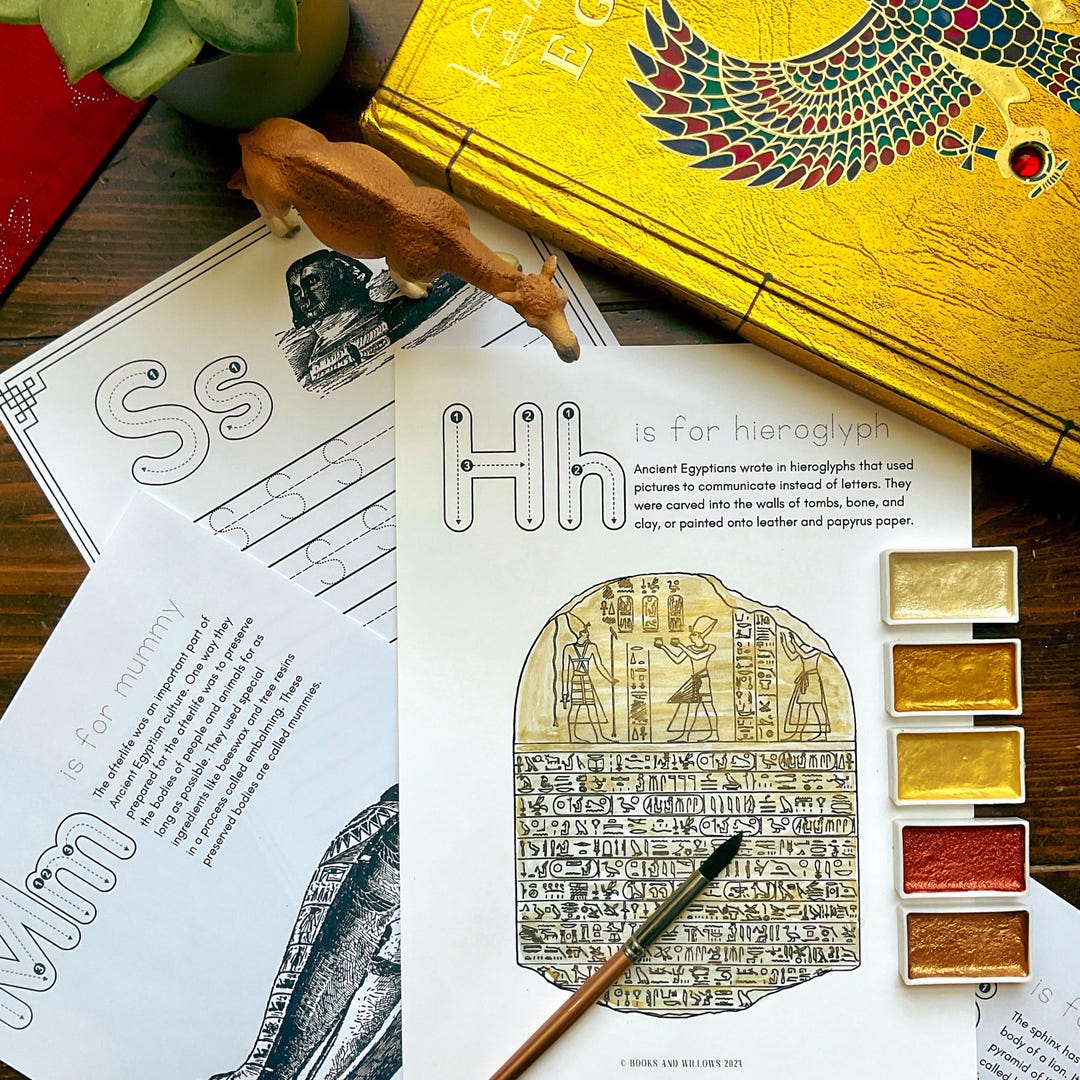 EG
Ss
Hh
is for hieroglyph
Ancient Egyptians wrote in hieroglyphs that used
pictures to communicate instead of letters. They
were carved into the walls of tombs, bone, and
clay, or painted onto leather and papyrus paper.
Mm
is for mummy
The afterlife was an important part of
Ancient Egyptian culture. One way they
prepared for the afterlife was to preserve
the bodies of people and animals for as
long as possible. They used special
ingredients like beeswax and tree resins
in a process called embalming. These
preserved bodies are called mummies.
is
The sphinx has
body of a lion.
pyramid of
called
© BOOKS AND WILLOWS 2023